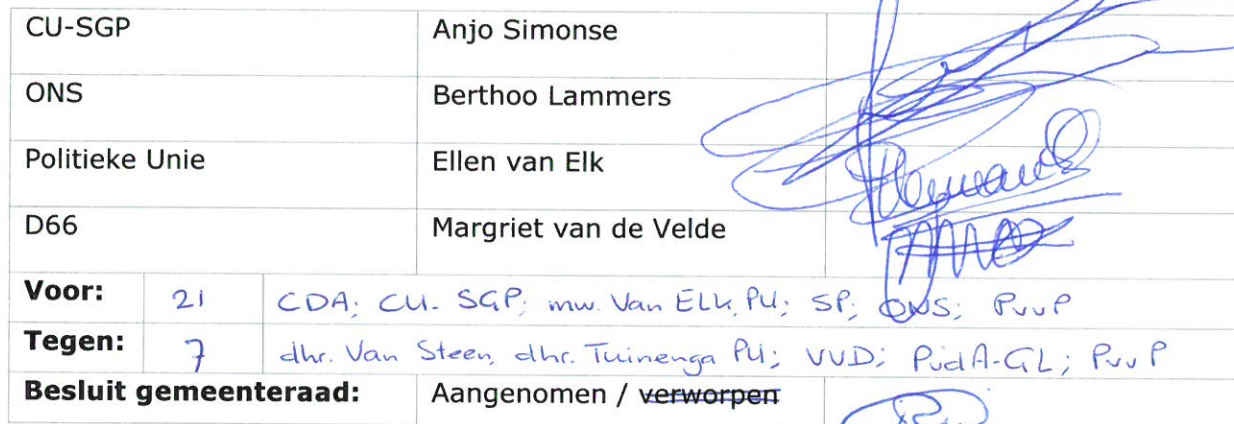 CU-SGP Anjo Simonse
ONS Berthoo Lammers
Politieke Unie Ellen van Elk
D66 Margriet van de Velde
Voor: 21 CDA; CU-SGP; mw. Van Elk, PU; SP; ONS; PvvP
Tegen: 7 dhr. Van Steen, dhr. Tuinenga PU; VVD; PvdA-GL; PvvP
Besluit gemeenteraad: Aangenomen / verworpen